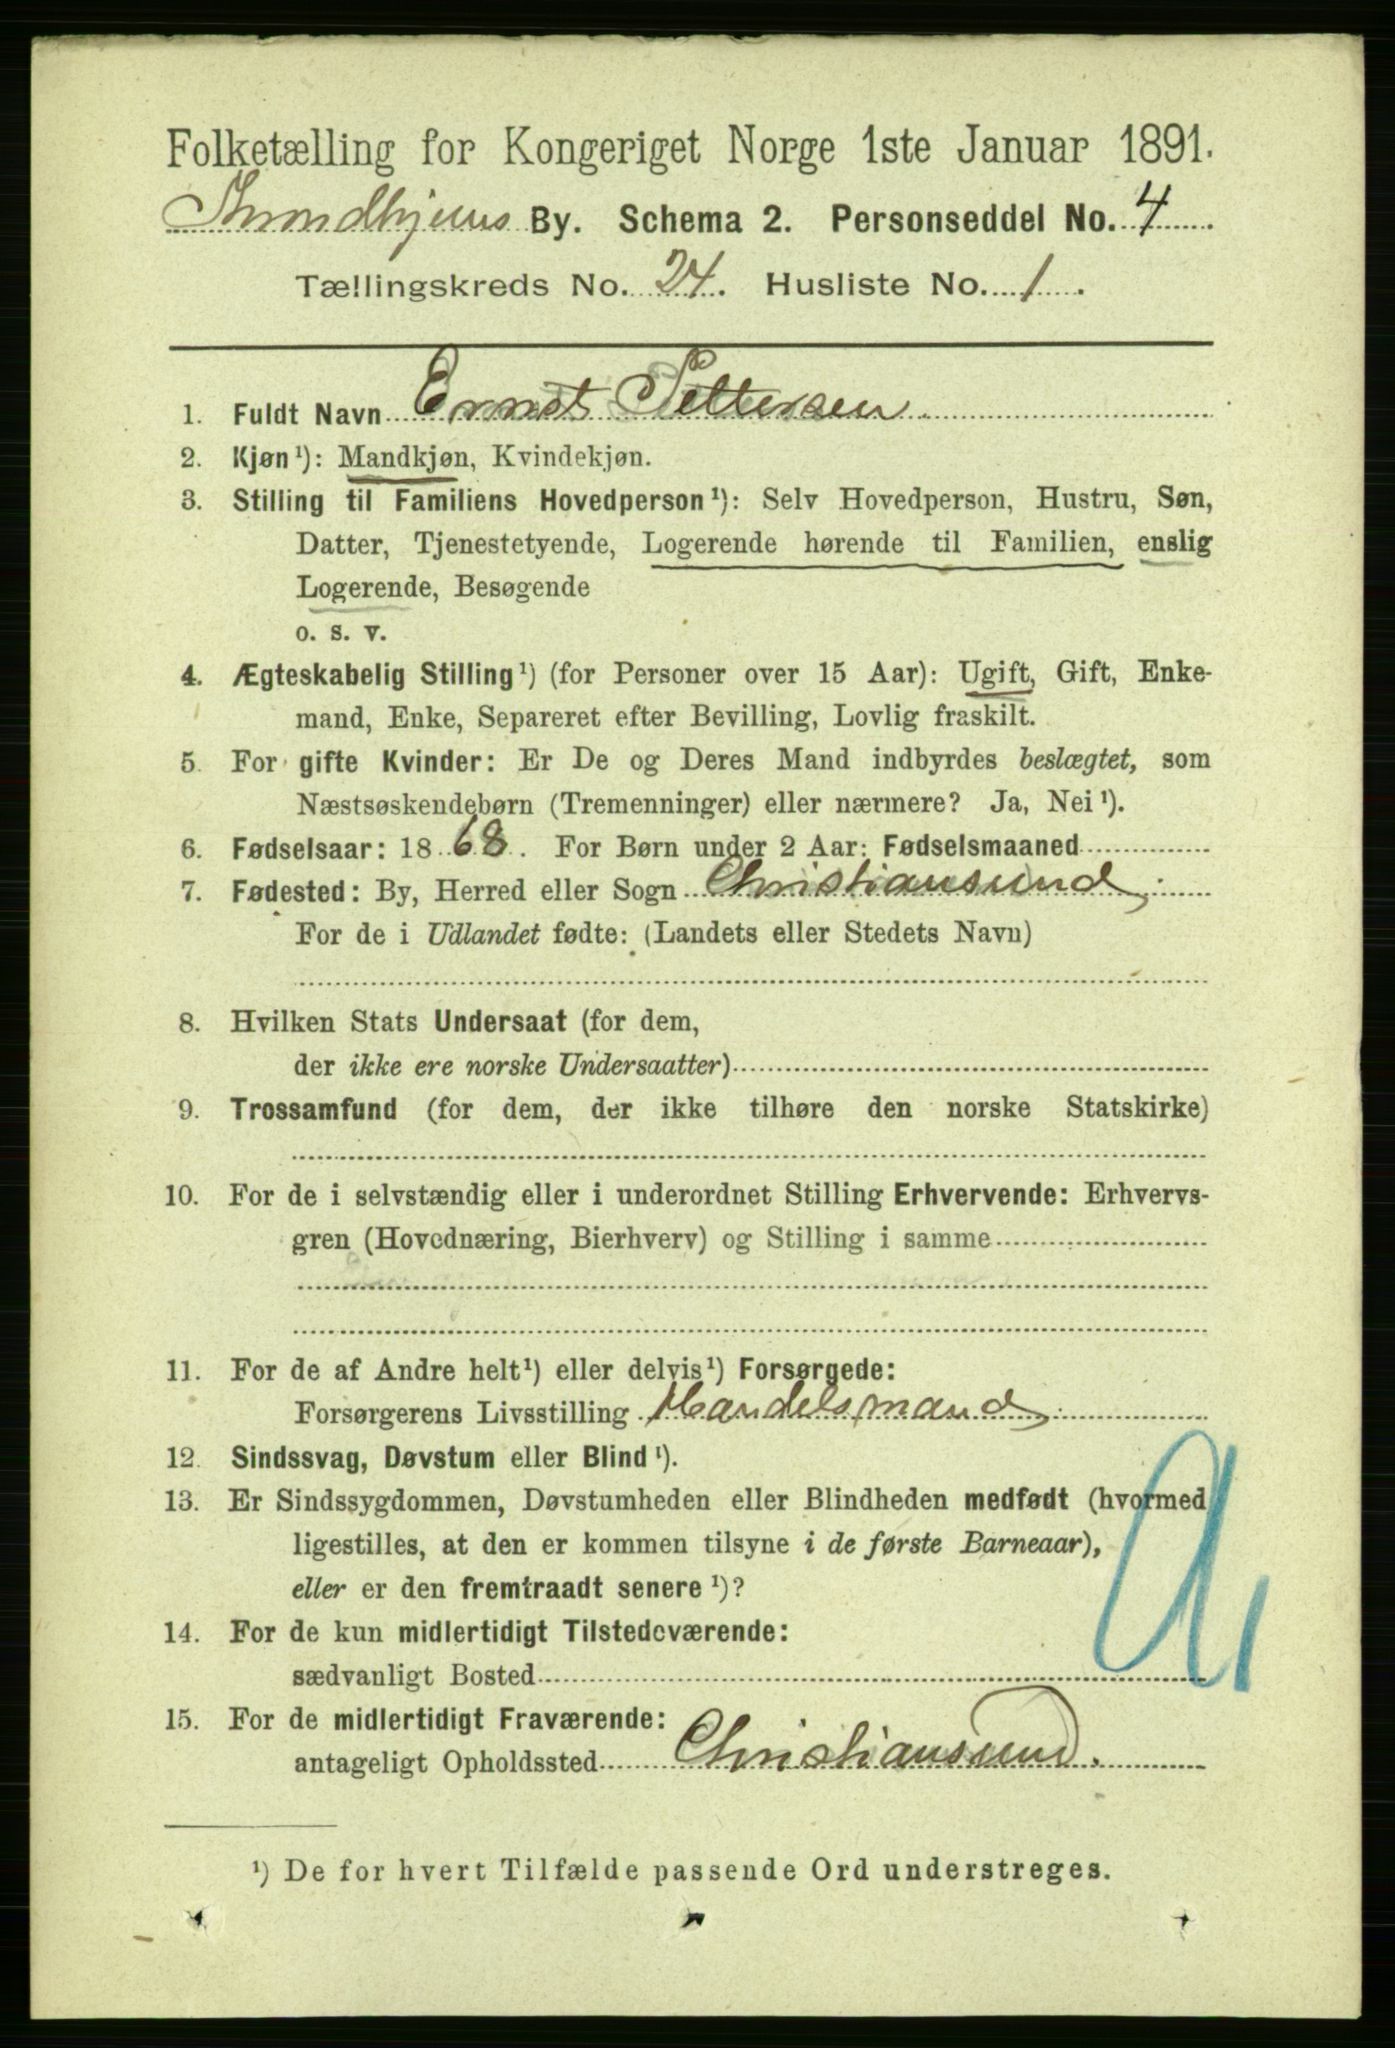 Folketælling for Kongeriget Norge 1ste Januar 1891.
Trondhjems By. Schema 2. Personseddel No. 4
Tællingskreds No. 24. Husliste No. 1.
1. Fuldt Navn Ernst Pettersen
2. Kjøn¹): Mandkjøn, Kvindekjøn.
3. Stilling til Familiens Hovedperson¹): Selv Hovedperson, Hustru, Søn,
Datter, Tjenestetyende, Logerende hørende til Familien, enslig
Logerende, Besøgende
o. s. v.
4. Ægteskabelig Stilling¹) (for Personer over 15 Aar): Ugift, Gift, Enke-
mand, Enke, Separeret efter Bevilling, Lovlig fraskilt.
5. For gifte Kvinder: Er De og Deres Mand indbyrdes beslægtet, som
Næstsøskendebørn (Tremenninger) eller nærmere? Ja, Nei¹).
6. Fødselsaar: 1868. For Børn under 2 Aar: Fødselsmaaned
7. Fødested: By, Herred eller Sogn Christiansund
For de i Udlandet fødte: (Landets eller Stedets Navn)
8. Hvilken Stats Undersaat (for dem,
der ikke ere norske Undersaatter)
9. Trossamfund (for dem, der ikke tilhøre den norske Statskirke)
10. For de i selvstændig eller i underordnet Stilling Erhvervende: Erhvervs-
gren (Hovednæring, Bierhverv) og Stilling i samme
11. For de af Andre helt¹) eller delvis¹) Forsørgede:
Forsørgerens Livsstilling Handelsmand
12. Sindssvag, Døvstum eller Blind¹).
13. Er Sindssygdommen, Døvstumheden eller Blindheden medfødt (hvormed
ligestilles, at den er kommen tilsyne i de første Barneaar),
eller er den fremtraadt senere¹)?
14. For de kun midlertidigt Tilstedeværende:
sædvanligt Bosted
15. For de midlertidigt Fraværende:
antageligt Opholdssted Christiansund.
¹) De for hvert Tilfælde passende Ord understreges.